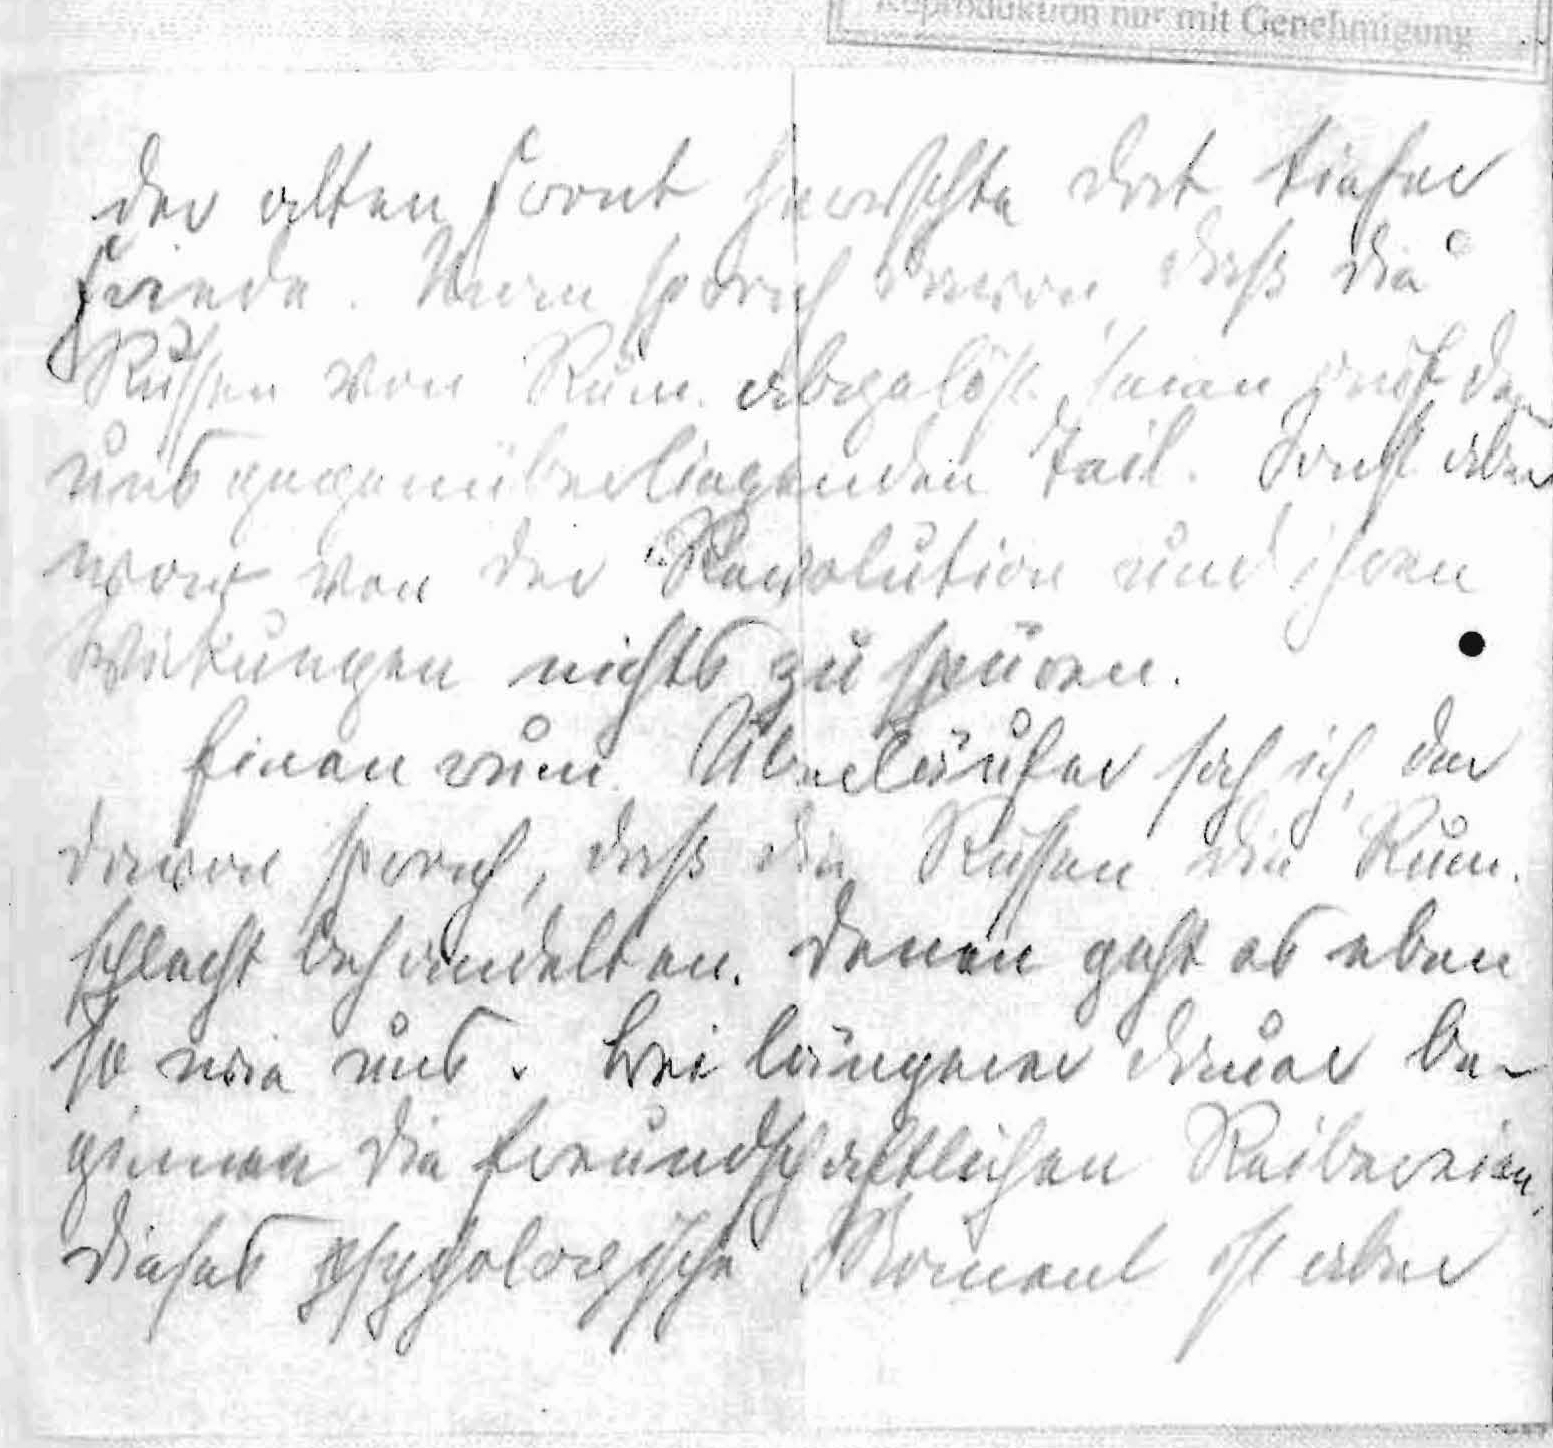 Reproduktion nur mit Genehmigung
der alten Front herrschte dort tiefer
Friede. Man sprach davon, daß die
Russen von Rum. abgelöst seien auf dem
uns gegenüberliegenden Teil. Sonst aber
war von der Revolution und ihren
Wirkungen nichts zu spüren.
Einen rum. Überläufer sah ich, der
davon sprach, daß die Russen die Rum.
schlecht behandelten. Denen geht es eben
so wie uns. Bei längerer Dauer be-
ginnen die freundschaftlichen Reibereien,
dieses psychologische Moment ist aber